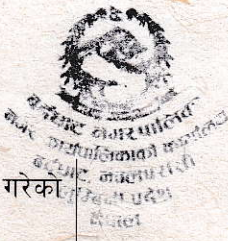 बर्दघाट नगरपालिका
नगर कार्यपालिकाको कार्यालय
बर्दघाट, नवलपरासी
लुम्बिनी प्रदेश
नेपाल
गरेको